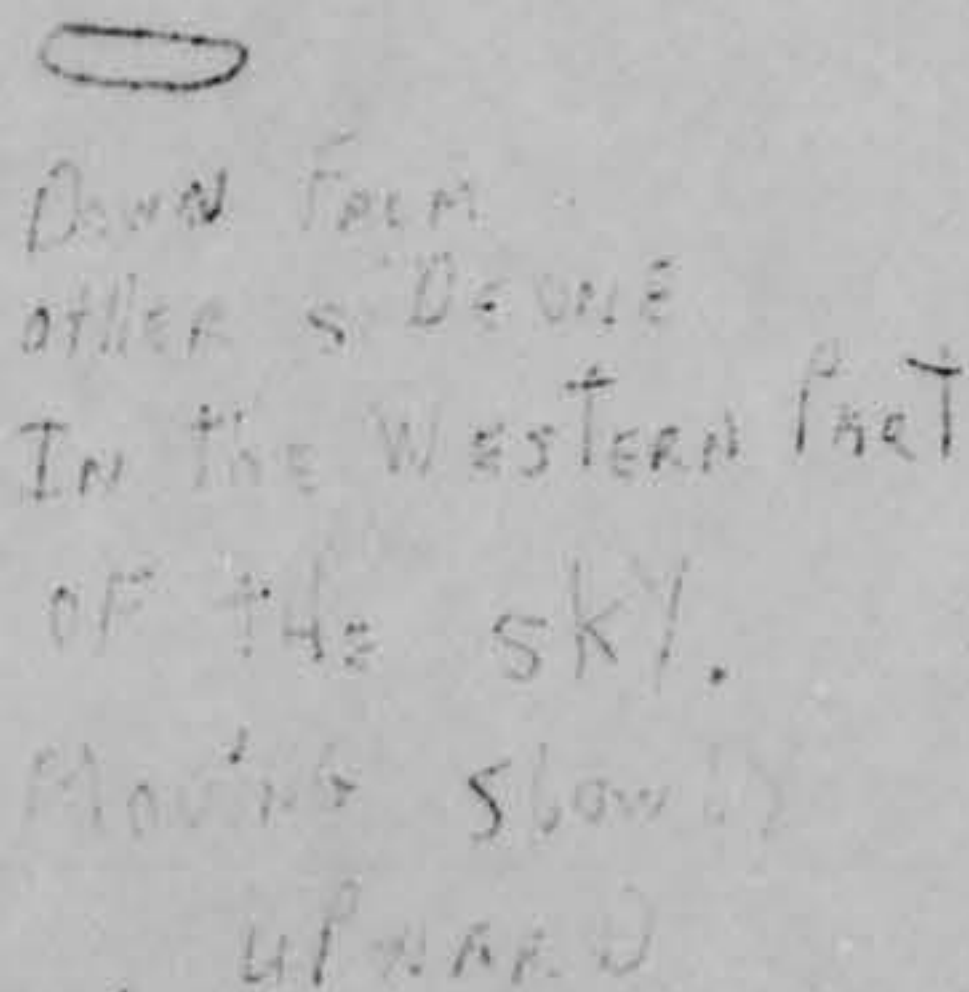 Down From
other
IN the WESTERN PART
OF tHE SKY.
Moving slowly
UPWARD